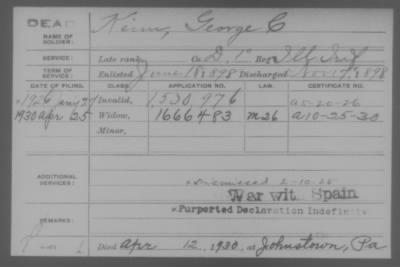 DEAD
NAME OF SOLDIER: George C
SERVICE: Late rank, Co. D, 1" Reg't Inf
TERM OF SERVICE: Enlisted June 18 1898 Discharged Nov 17, 1898
DATE OF FILING. CLASS. APPLICATION NO. LAW. CERTIFICATE NO.
1926 Jany 27 Invalid, 1,530,976 a 5-20-26
1930 Apr 25 Widow, 1666483 M26 a 10-25-30
Minor,
ADDITIONAL SERVICES: Dismissed 2-10-25
War with Spain
*Purported Declaration Indefinite
REMARKS:
Died Apr 12, 1930, at Johnstown, Pa